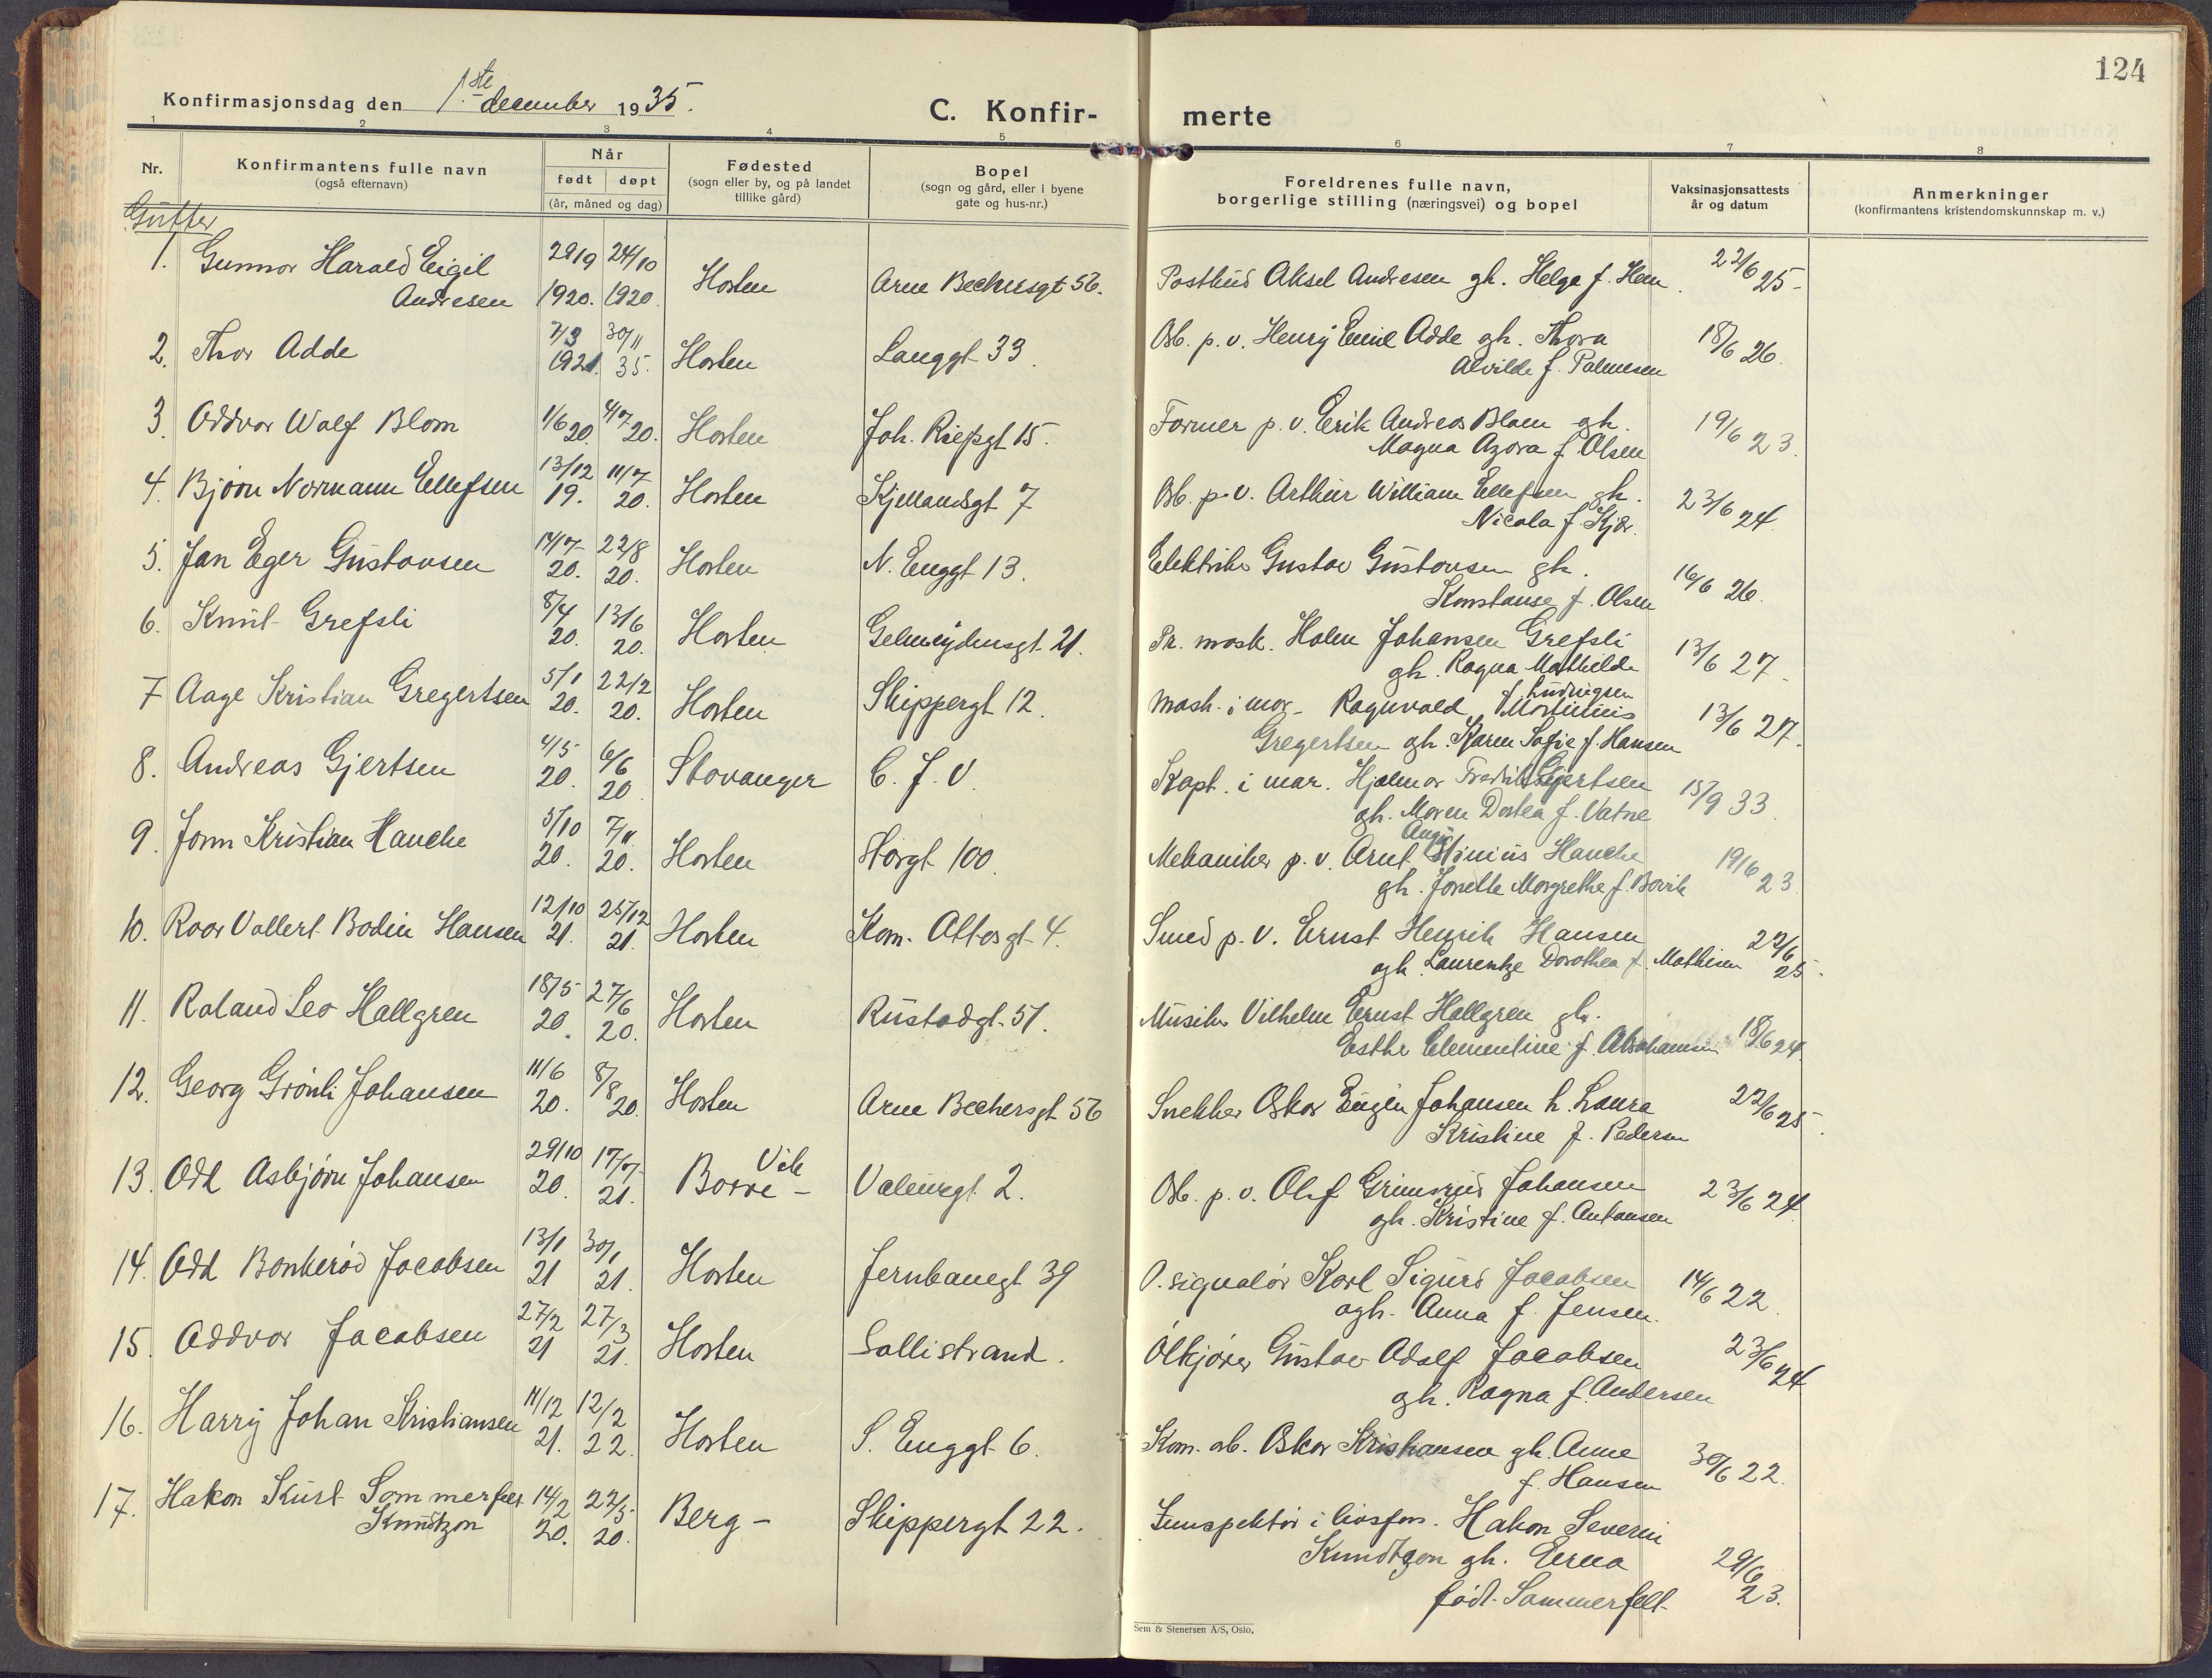 124
Konfirmasjonsdag den 1ste december 1935.
C. Konfir- merte
1 2 3 4 5 6 7 8
Nr.
Konfirmantens fulle navn
(også efternavn)
Når
født døpt
(år, måned og dag)
Fødested
(sogn eller by, og på landet
tillike gård)
Bopel
(sogn og gård, eller i byene
gate og hus-nr.)
Foreldrenes fulle navn,
borgerlige stilling (næringsvei) og bopel
Vaksinasjonsattests
år og datum
Anmerkninger
(konfirmantens kristendomskunnskap m. v.)
Gutter
1. Gunnar Harald Eigil 29/9 24/10 Horten Arne Bechersgt 56. Postbud Aksel Andresen gh. Helga f. Hem 22/6 25
Andresen 1920. 1920
2. Thor Adde 7/3 1921. 30/11 35. Horten Langgt 33. Arb. p. v. Henry Emil Adde gh. Thora 18/6 26.
Alvilde f. Palmesen
3. Oddvar Walf Blom 1/6 20. 4/7 20. Horten Joh. Riepsgt 15. Former p. v. Erik Andreas Blom gh. 19/6 23.
Magna Azora f. Olsen
4. Bjørn Normann Ellefsen 13/12 19. 11/7 20. Horten Kjellandsgt 7 Arb. p. v. Arthur William Ellefsen gh. 23/6 24.
Nicola f. Kjær.
5. Jan Eger Gustavsen 14/7 20. 22/8 20. Horten N. Enggt 13. Elektriker Gustav Gustavsen gh. 16/6 26.
Konstanse f. Olsen
6. Knut Grefsli 8/4 20. 13/6 20. Horten Gelmeydensgt. 21. Pr. mask. Holm Johansen Grefsli 13/6 27
gh. Ragna Mathilde
f. Ludvigsen
7 Aage Kristian Gregertsen 5/1 20. 22/2 20. Horten Skippergt 12. Mask. i mar. Ragnvald Mortinius 13/6 27.
Gregertsen gh. Karen Sofie f. Hansen
8. Andreas Gjertsen 4/5 20. 6/6 20 Stavanger C. J. V. Kapt. i mar. Hjalmar Fredrik Gjertsen 15/9 33
gh. Maren Dortea f. Vatne
9. Jonn Kristian Hauche 5/10 20. 7/11 20. Horten Storgt 100. Mekaniker p. v. Arnt Hauche 19/6 23
gh. Jonette Margrethe f. Borvik
10. Roar Vallert Bodin Hansen 12/10 21. 25/12 21. Horten Kom. Altersgt. 4. Smed p. v. Ernst Henrik Hansen 22/6 25
gh. Laurentze Dorothea f. Mathisen
11. Roland Leo Hallgren 18/5 20. 27/6 20. Horten Rustadgt. 51. Musiker Vilhelm Ernst Hallgren gh. 18/6 24
Esther Clementine f. Abrahamsen
12. Georg Grønli Johansen 11/6 20. 8/8 20. Horten Arne Bechersgt 56 Snekker Oskar Eugen Johansen h. Laura 22/6 25
Kristine f. Pedersen
13. Odd Asbjørn Johansen 29/10 20. 17/7 21. Borre - Vik Valeurgt. 2. Arb. p. v. Olaf Grimsrud Johansen 23/6 24.
gh. Kristine f. Antonsen
14. Odd Bonkerød Jacobsen 13/1 21 30/1 21. Horten Jernbanegt 39 O. signalør Karl Sigurd Jacobsen 14/6 22.
ogh. Anna f. Jensen.
15. Oddvar Jacobsen 27/2 21 27/3 21. Horten Sollistrand. Ølkjører Gustav Adolf Jacobsen 23/6 24
gh. Ragna f. Andersen
16. Harry Johan Kristiansen 11/12 21. 12/2 22. Horten S. Enggt 6. Kom. arb. Oskar Kristiansen gh. Anne 30/6 22.
f. Hansen
17. Hakon Kurt Sommerfelt 14/2 20. 22/5 20. Berg - Skippergt 22. Hakon Severin
Knudtzon Knudtzon gh. Erna 29/6 23.
født Sommerfelt
Sem & Stenersen A/S, Oslo.